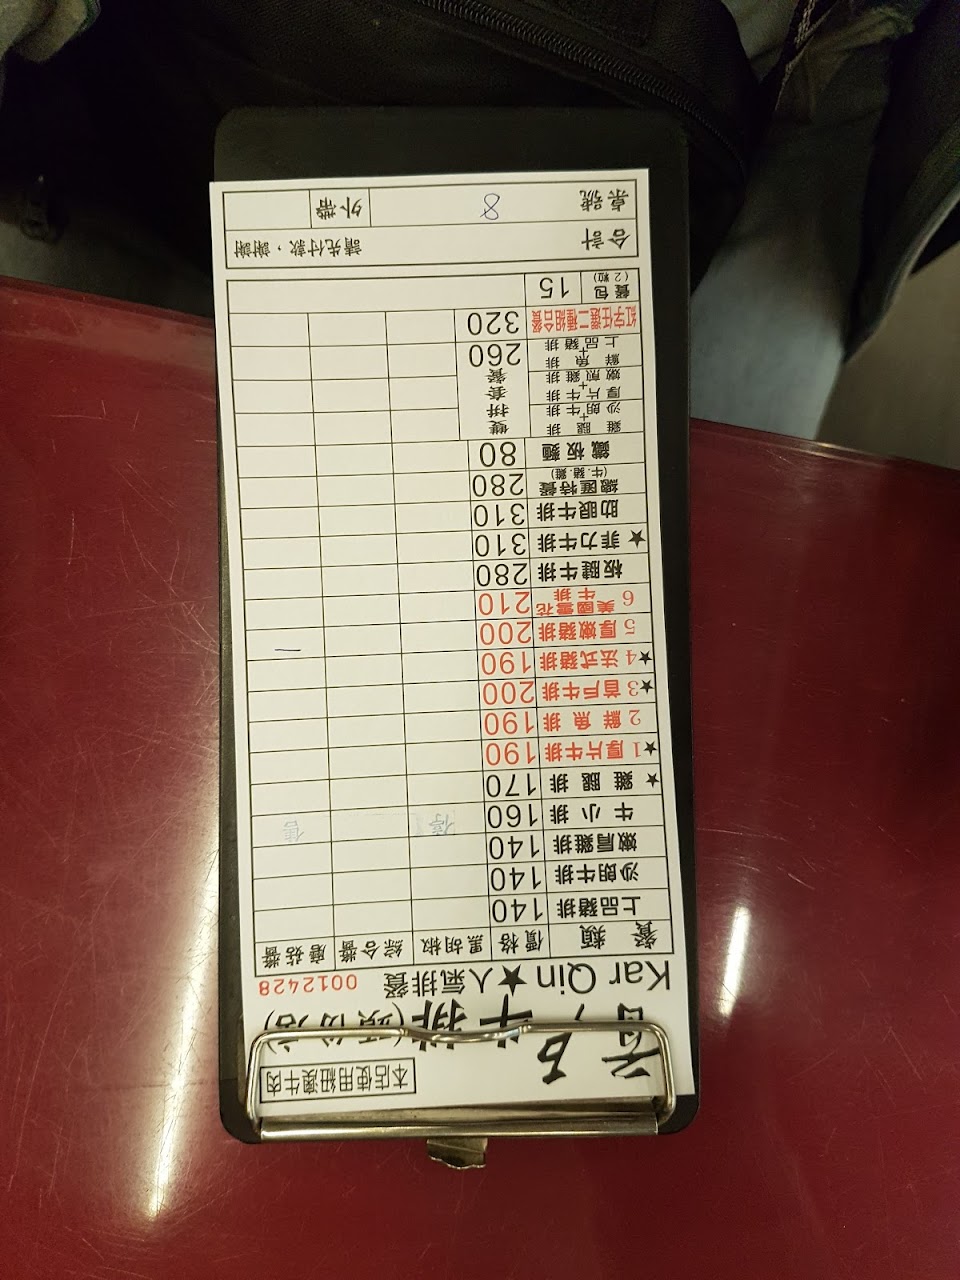 本店使用紐澳牛肉
首戶牛排(頭份店)
Kar Qin★人氣排餐 0012428
餐類 價格 黑胡椒 綜合醬 蘑菇醬
上品豬排 140
沙朗牛排 140
嫩肩雞排 140
牛小排 160 停 售
★ 雞腿排 170
★1 厚片牛排 190
2 鮮魚排 190
★3 首戶牛排 200
★4 法式豬排 190
5 厚嫩豬排 200 一
6 美國雪花牛排 210
板腱牛排 280
★ 菲力牛排 310
肋眼牛排 310
總匯特餐(牛.豬.雞) 280
鐵板麵 80
雞腿排+沙朗牛排 雙拼套餐 260
厚片牛排+嫩煎雞排
鮮魚排+上品豬排
紅字任選二種組合餐 320
餐包(2粒) 15
合計 請先付款，謝謝
桌號 8 外帶